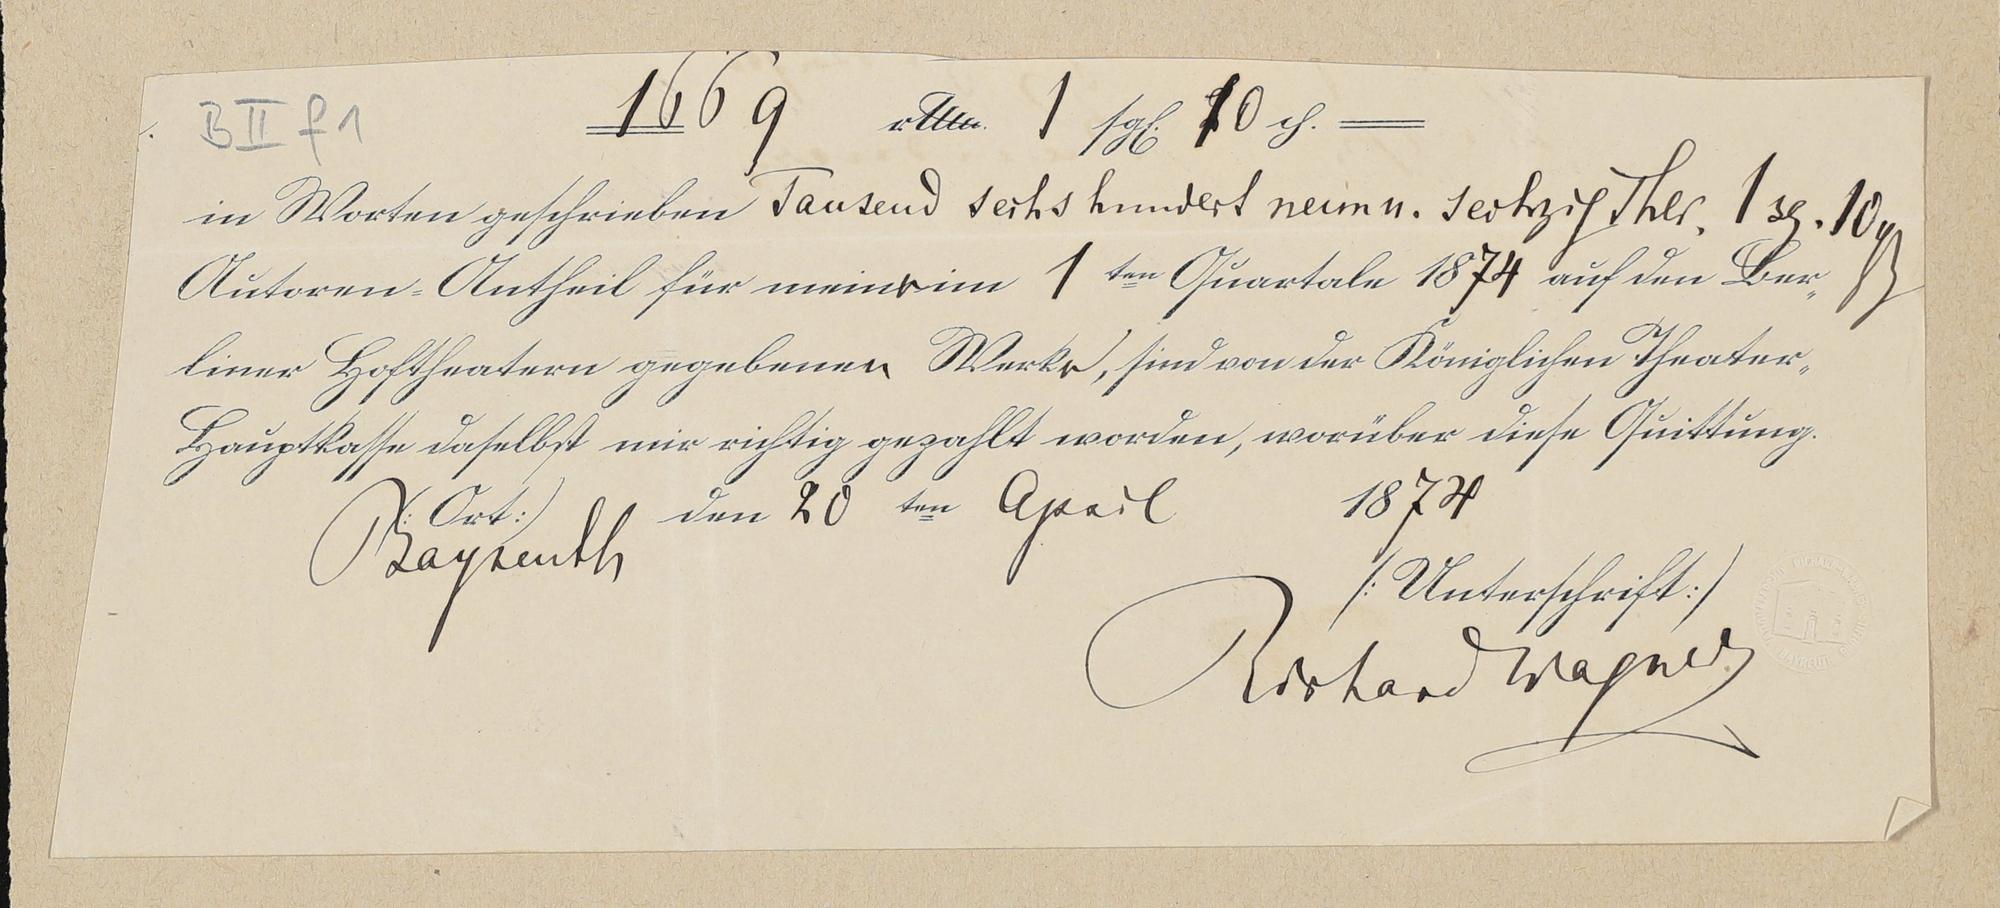 B II f 1
1669 rthlr. 1 sgl. 10 ch.
in Worten geschrieben Tausend sechshundert neun u. sechzig Thlr. 1 sg. 10
Autoren-Antheil für meine im 1 ten Quartale 1874 auf den Ber-
liner Hoftheatern gegebenen Werke, sind von der Königlichen Theater-
Hauptkasse daselbst mir richtig gezahlt worden, worüber diese Quittung.
(: Ort :) den 20 ten April 1874
Bayreuth
(: Unterschrift :)
Richard Wagner